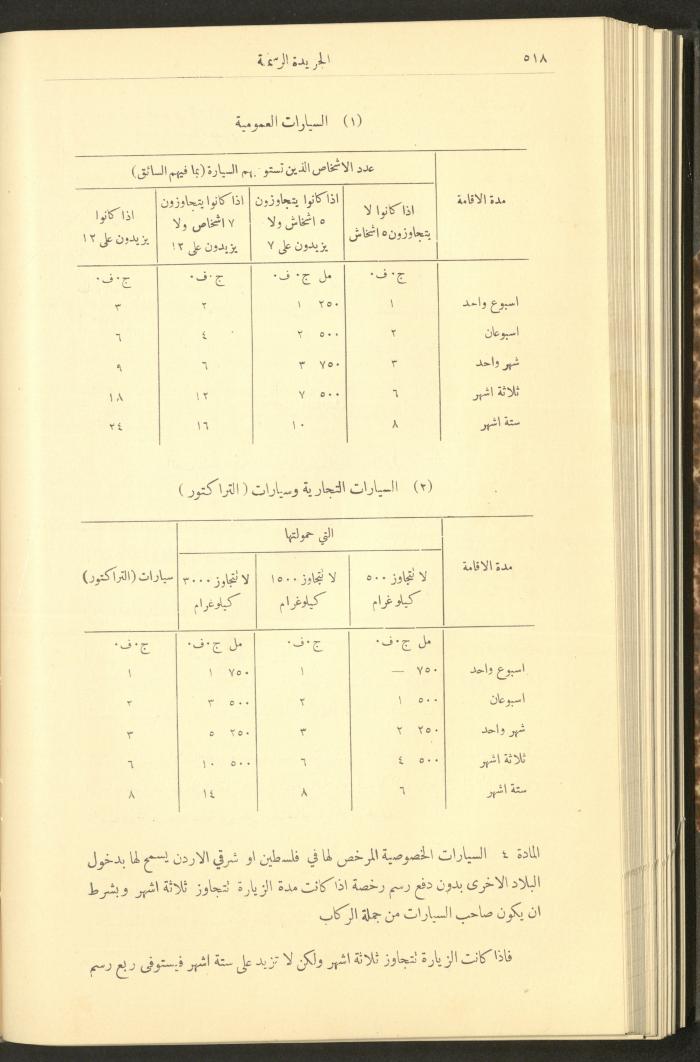 ٥١٨
الجريدة الرسمية
(١) السيارات العمومية
مدة الاقامة
عدد الاشخاص الذين تستوعبهم السيارة (بما فيهم السائق)
اذا كانوا لا يتجاوزون ٥ اشخاش
اذا كانوا يتجاوزون ٥ اشخاش ولا يزيدون على ٧
اذا كانوا يتجاوزون ٧ اشخاص ولا يزيدون على ١٢
اذا كانوا يزيدون على ١٢
ج٠ف٠ مل ج٠ف٠ ج٠ف٠ ج٠ف٠
اسبوع واحد ١ ٢٥٠ ١ ٢ ٣
اسبوعان ٢ ٥٠٠ ٢ ٤ ٦
شهر واحد ٣ ٧٥٠ ٣ ٦ ٩
ثلاثة اشهر ٦ ٥٠٠ ٧ ١٢ ١٨
ستة اشهر ٨ ١٠ ١٦ ٢٤
(٢) السيارات التجارية وسيارات (التراكتور)
مدة الاقامة
التي حمولتها
لا تتجاوز ٥٠٠ كيلوغرام
لا تتجاوز ١٥٠٠ كيلوغرام
لا تتجاوز ٣٠٠٠ كيلوغرام
سيارات (التراكتور)
مل ج٠ف٠ ج٠ف٠ مل ج٠ف٠ ج٠ف٠
اسبوع واحد ٧٥٠ — ١ ٧٥٠ ١ ١
اسبوعان ٥٠٠ ١ ٢ ٥٠٠ ٣ ٢
شهر واحد ٢٥٠ ٢ ٣ ٢٥٠ ٥ ٣
ثلاثة اشهر ٥٠٠ ٤ ٦ ٥٠٠ ١٠ ٦
ستة اشهر ٦ ٨ ١٤ ٨
المادة ٤ السيارات الخصوصية المرخص لها في فلسطين او شرقي الاردن يسمح لها بدخول
البلاد الاخرى بدون دفع رسم رخصة اذا كانت مدة الزيارة تتجاوز ثلاثة اشهر وبشرط
ان يكون صاحب السيارات من جملة الركاب
فاذا كانت الزيارة تتجاوز ثلاثة اشهر ولكن لا تزيد على ستة اشهر فيستوفى ربع رسم